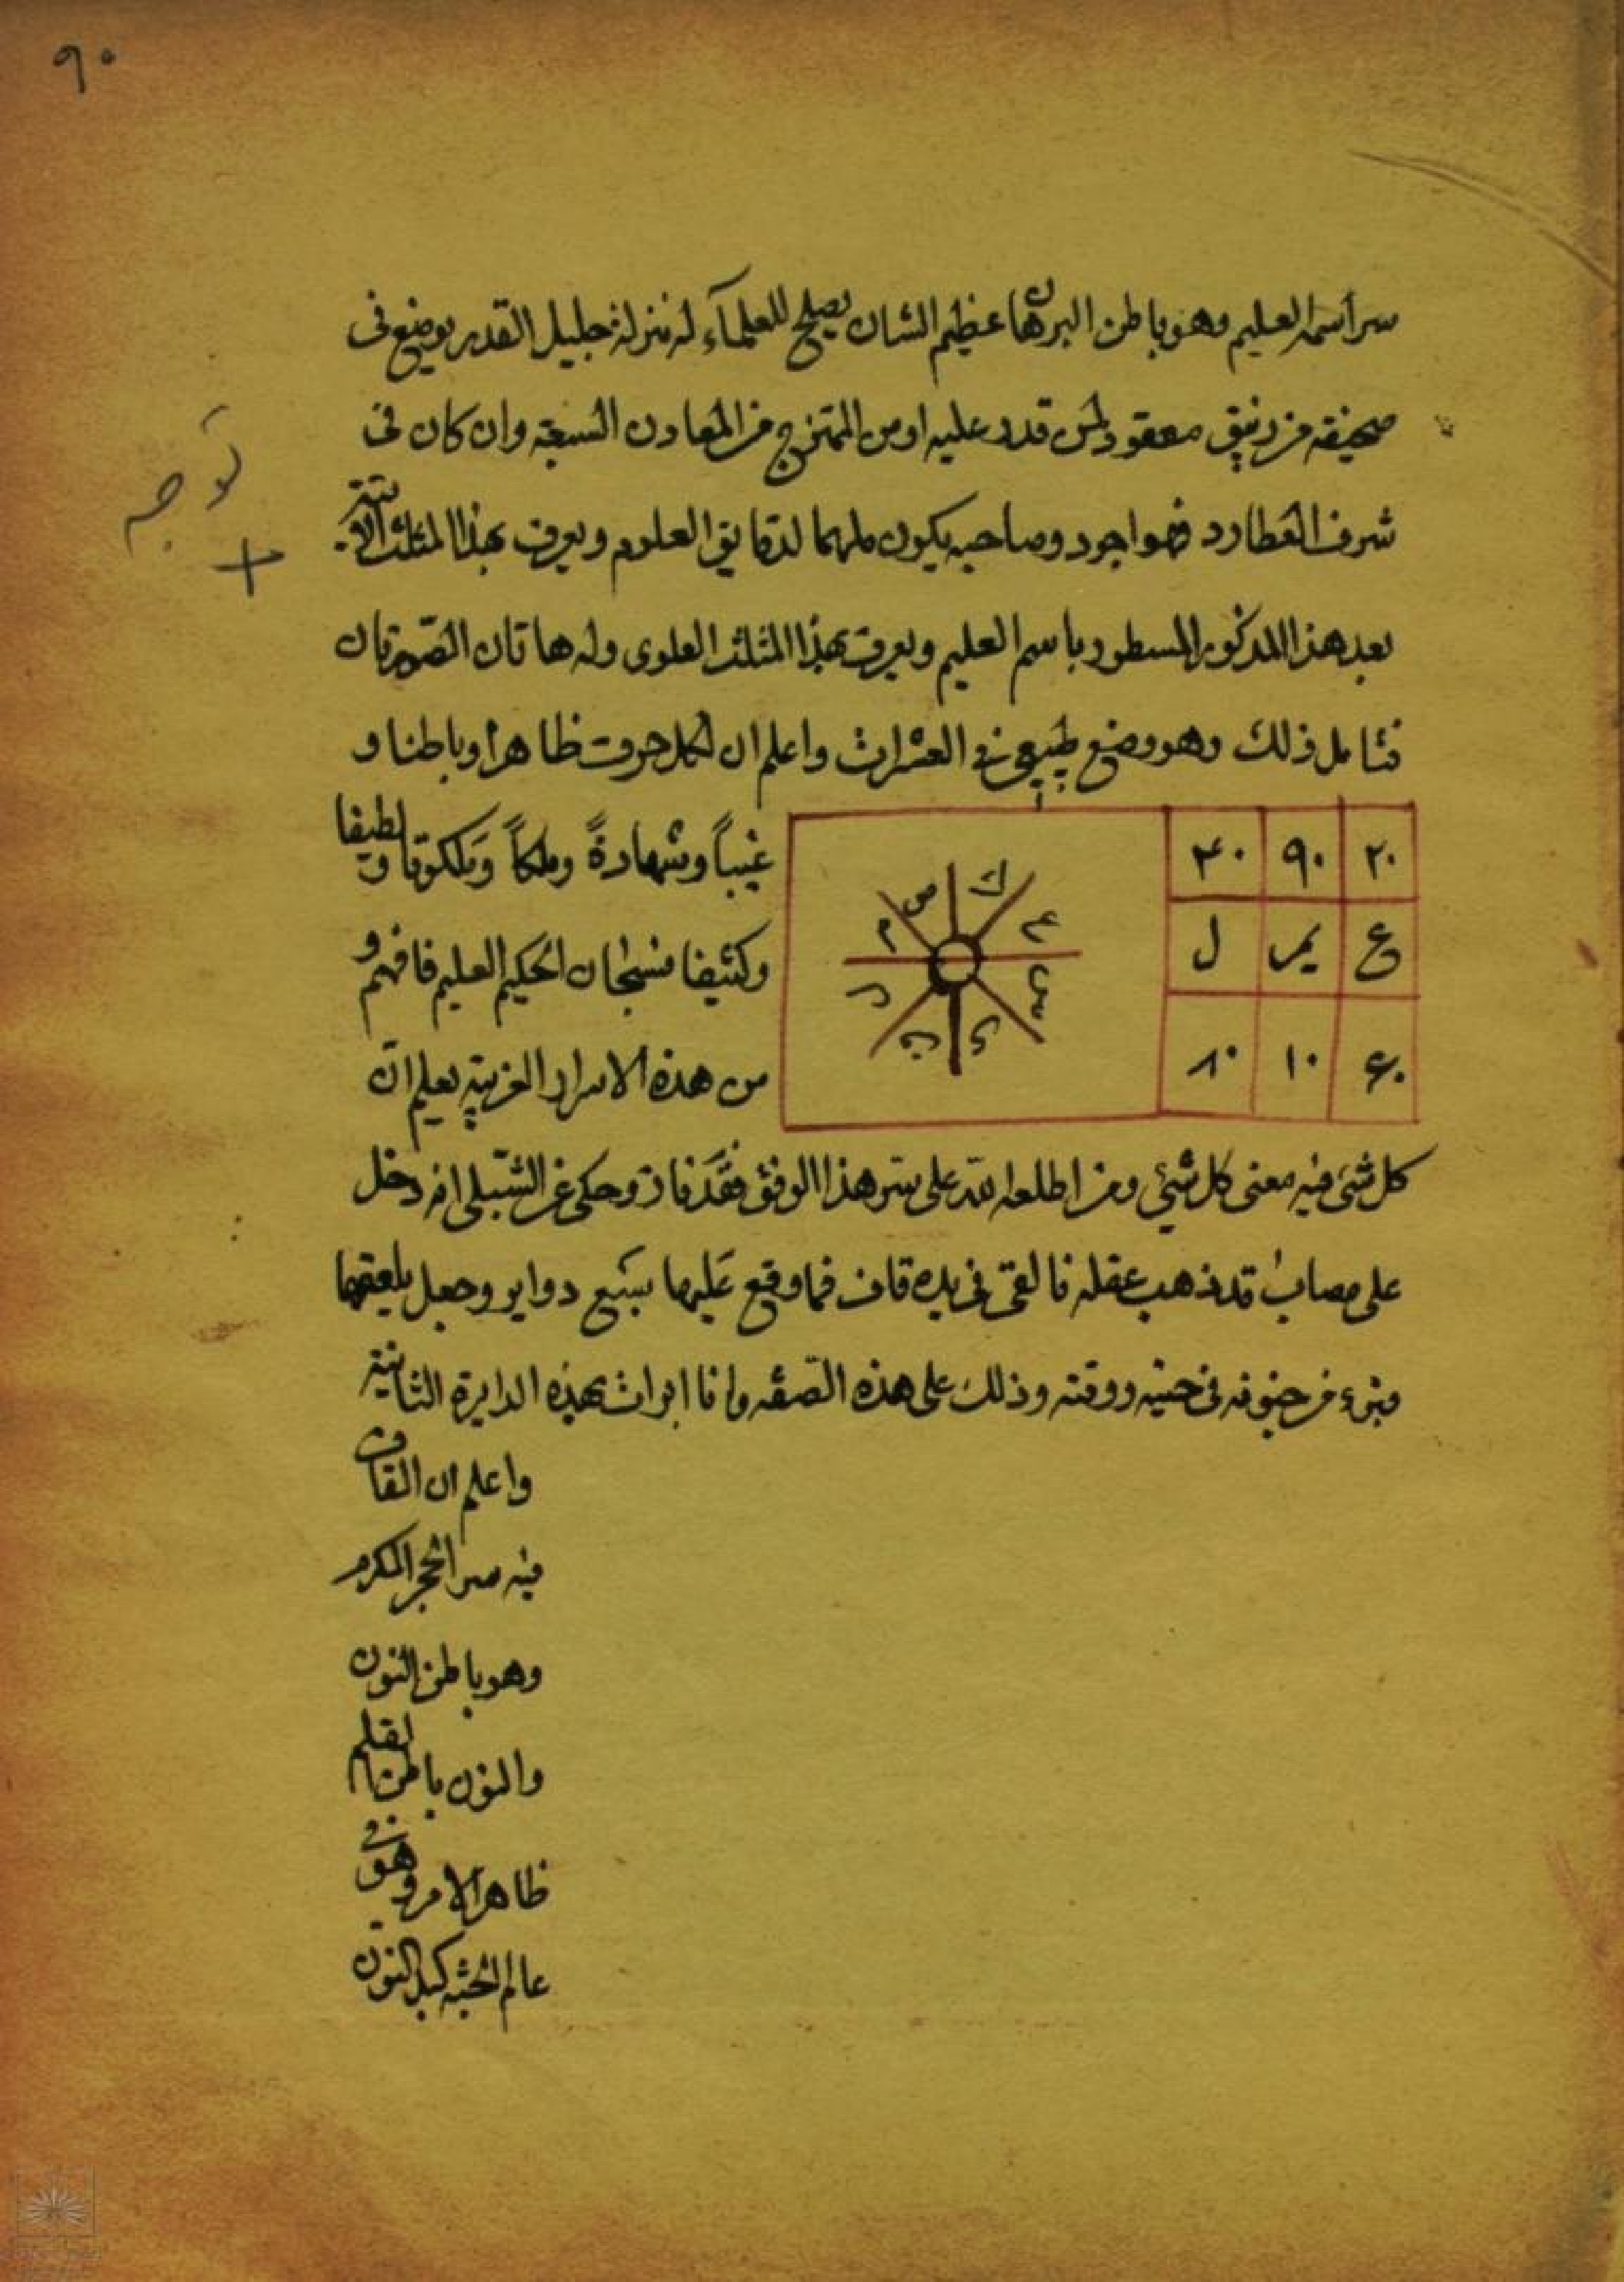 ٩٠
سر اسمه العليم وهو باطن البرهان عظيم الشان يصلح للعلمآء له منزلة جليل القدر يوضع فى
صحيفة من زيبق معقود لمن قدر عليه او من الممتزج من المعادن السبعة وان كان فى
شرف العطارد فهو اجود وصاحبه يكون ملهما لدقايق العلوم ويعرف بهذا المثلث
توجه
+
بعد هذا المذكور المسطور باسم العليم ويعرف بهذا المثلث العلوى وله هاتان الصورتان
فتامل ذلك وهو وضع طبيعى فى العشرات واعلم ان لكل حرف ظاهرا وباطنا و
٢٠ ٩٠ ٤٠
ع ل
٦٠ ١٠ ٨٠
ك ص م ل ن ى س ع
غيباً وشهادةً وملكاً وملكوتا ولطيفا
وكثيفا فسبحان الحكيم العليم فافهم و
من هذه الاسرار الغريبة يعلم ان
كل شئ فيه معنى كل شئ ومن اطلعه الله على سر هذا الوفق فقد فاز وحكى عن الشبلى انه دخل
على مصاب قد ذهب عقله فالقى فى يده قاف فما وقع عليها سبع دواير وجعل يلعقها
وبرء من جنونه فى حينه ووقته وذلك على هذه الصفة وانا ابرات بهذه الدايرة الثانية
واعلم ان القاف
فيه سر الحجر المكرم
وهو باطن النون
والنون باطن القلم
ظاهر الامر وهو فى
عالم كبد النون